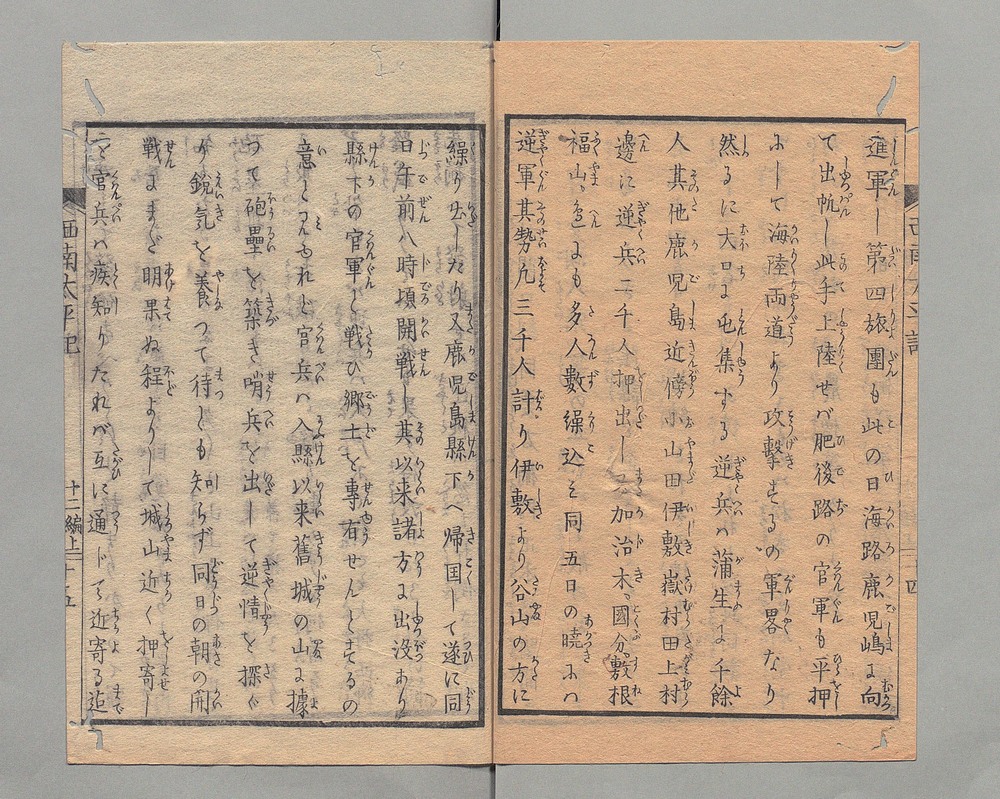 進軍し第四旅團も此の日海路鹿児嶋に向
て出帆し此手上陸せバ肥後路の官軍も平押
にして海陸両道より攻撃するの軍畧なり
然るに大口に屯集する逆兵ハ蒲生に千餘
人其他鹿児島近傍小山田伊敷嶽村田上村
邊に逆兵二千人押出し又加治木國分敷根
福山邉にも多人數繰込み同五日の曉にハ
逆軍其勢凡三千人計り伊敷より谷山の方に
繰り出したり又鹿児島縣下へ帰国して遂に同
日午前八時頃開戦し其以来諸方に出没あり
縣下の官軍と戦ひ郷士を專有せんとするの
意と見ゆれど官兵ハ入縣以来舊城の山に據
つて砲壘を築き哨兵を出して逆情を探ぐ
り鋭気を養つて待とも知らず同日の朝の開
戦にまだ明果ぬ程よりして城山近く押寄し
を官兵ハ疾知りたれバ互に通じて近寄る迄
西南太平記
十二編上
十五